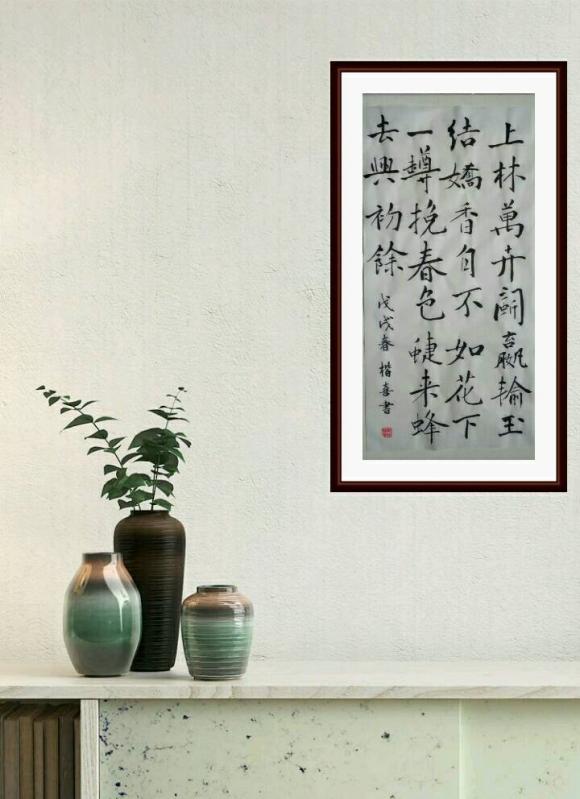 上林萬卉鬭嬴輸玉
結嬌香自不如花下
一罇挽春色蜨来蜂
去興初餘
戊戌春楷喜書